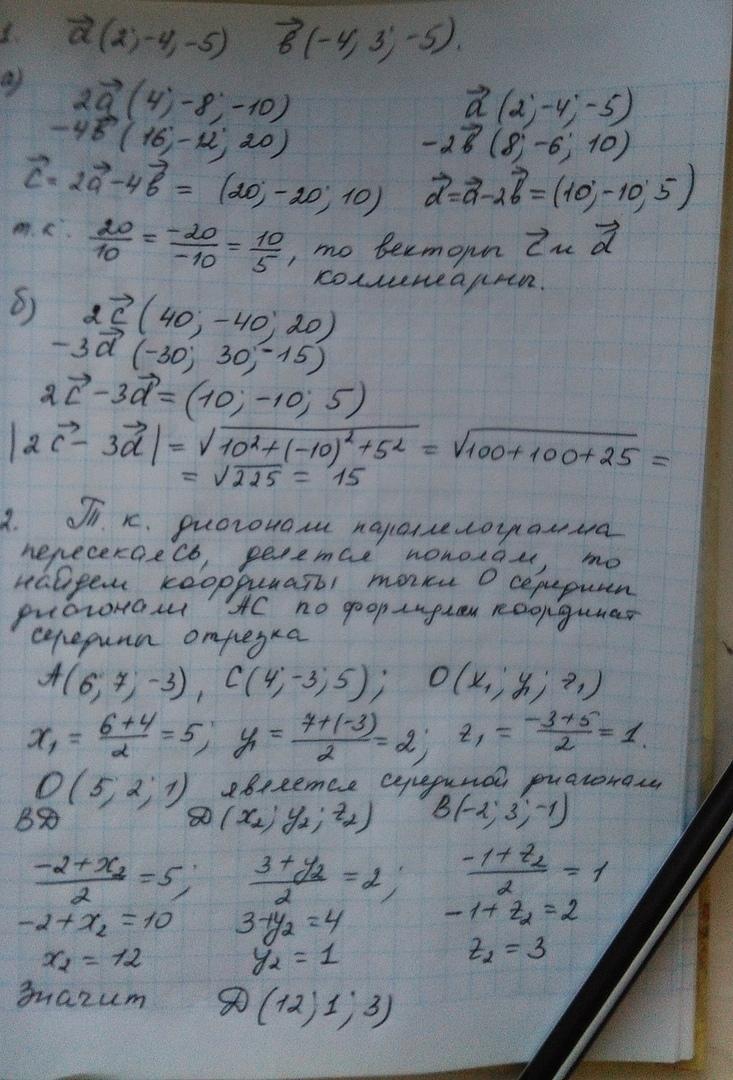 1. a⃗(2; -4; -5) b⃗(-4; 3; -5).
а)
2a⃗(4; -8; -10) a⃗(2; -4; -5)
-4b⃗(16; -12; 20) -2b⃗(8; -6; 10)
c⃗ = 2a⃗ - 4b⃗ = (20; -20; 10) d⃗ = a⃗ - 2b⃗ = (10; -10; 5)
т.к. 20/10 = -20/-10 = 10/5, то векторы c⃗ и d⃗
коллинеарны.
б) 2c⃗(40; -40; 20)
-3d⃗(-30; 30; -15)
2c⃗ - 3d⃗ = (10; -10; 5)
|2c⃗ - 3d⃗| = √(10² + (-10)² + 5²) = √(100+100+25) =
= √225 = 15
2. Т. к. диагонали параллелограмма
пересекаясь, делятся пополам, то
найдем координаты точки О середины
диагонали АС по формулам координат
середины отрезка
A(6; 7; -3), C(4; -3; 5); O(x₁; y₁; z₁)
x₁ = (6+4)/2 = 5; y₁ = (7+(-3))/2 = 2; z₁ = (-3+5)/2 = 1.
O(5; 2; 1) является серединой диагонали
ВД Д(x₂; y₂; z₂) B(-2; 3; -1)
(-2+x₂)/2 = 5; (3+y₂)/2 = 2; (-1+z₂)/2 = 1
-2+x₂ = 10 3+y₂ = 4 -1+z₂ = 2
x₂ = 12 y₂ = 1 z₂ = 3
Значит Д(12; 1; 3)